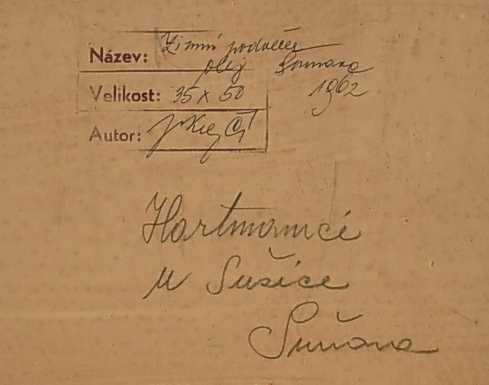 Název: Zimní podvečer
olej Šumava
Velikost: 35 x 50 1962
Autor:
Hartmanice
u Sušice
Šumava